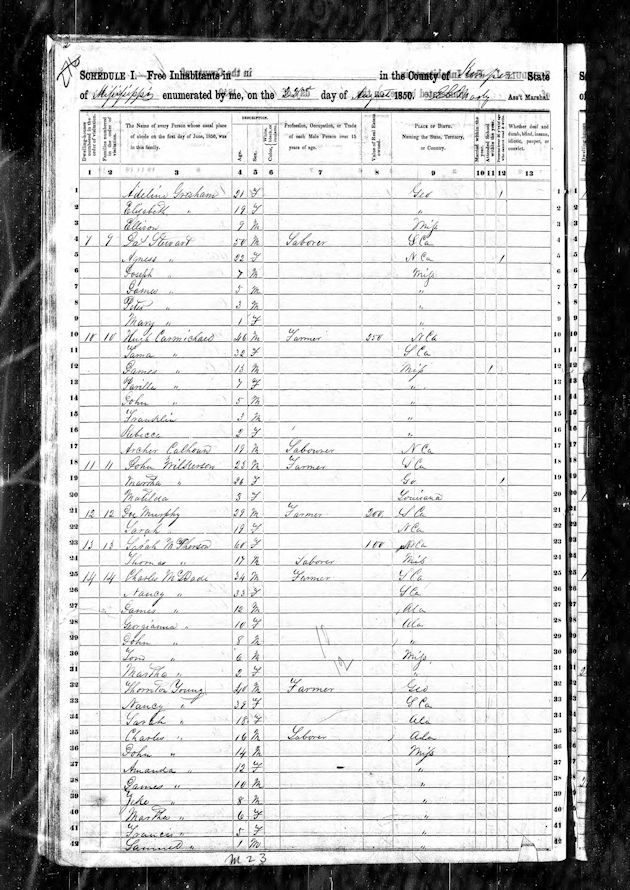 SCHEDULE I. Free Inhabitants in in the County of State
of Mississippi enumerated by me, on the day of August 1850. Ass't Marshal
DESCRIPTION.
Dwelling-houses numbered in the order of visitation.
Families numbered in the order of visitation.
The Name of every Person whose usual place of abode on the first day of June, 1850, was in this family.
Age.
Sex.
Profession, Occupation, or Trade of each Male Person over 15 years of age.
Value of Real Estate owned.
PLACE OF BIRTH. Naming the State, Territory, or Country.
Married within the year.
Attended School within the year.
Whether deaf and dumb, blind, insane, idiotic, pauper, or convict.
1 2 3 4 5 6 7 8 9 10 11 12 13
1 Adeline Gresham 21 F Geo 1 1
2 Elizabeth " 19 F " 2
3 Ellison 9 M Miss 3
4 9 Stewart 50 M Laborer S Ca 4
5 Agness " 22 F N Ca 1 5
6 Joseph " 7 M Miss 6
7 James " 5 M " 7
8 Peter " 3 M " 8
9 Mary " 1 F " 9
10 10 10 Hugh Carmichael 46 M Farmer 250 N Ca 10
11 Tama " 32 F S Ca 11
12 James " 13 M Miss 1 12
13 " 7 F " 13
14 John " 5 M " 14
15 Franklin 3 M " 15
16 Rebecca 2 F " 16
17 Archer Calhoun 19 M Labourer N Ca 17
18 11 11 John Wilkerson 23 M Farmer S Ca 18
19 Martha " 26 F Go 1 19
20 Matilda 3 F Louisana 20
21 12 12 Geo Murphy 29 M Farmer 200 S Ca 21
22 Sarah " 19 F N Ca 22
23 13 13 Sarah McPherson 60 F 100 N Ca 23
24 Thomas " 17 M Laborer Miss 24
25 14 14 Charles McDade 34 M Farmer S Ca 25
26 Nancy " 33 F S Ca 26
27 James " 12 M Ala 27
28 Georgianna " 10 F Ala 28
29 John " 8 M " 29
30 Tom " 6 M Miss 30
31 Martha " 2 F " 31
32 Thornton Young 40 M Farmer Geo 32
33 Nancy " 39 F S Ca 33
34 Sarah " 18 F Ala 34
35 Charles " 16 M Laborer Ala 35
36 John " 14 M Miss 36
37 Amanda " 12 F " 37
38 James " 10 M " 38
39 Zeke " 8 M " 39
40 Martha " 6 F " 40
41 Francis " 5 F " 41
42 Samuel " 1 M " 42
M 23